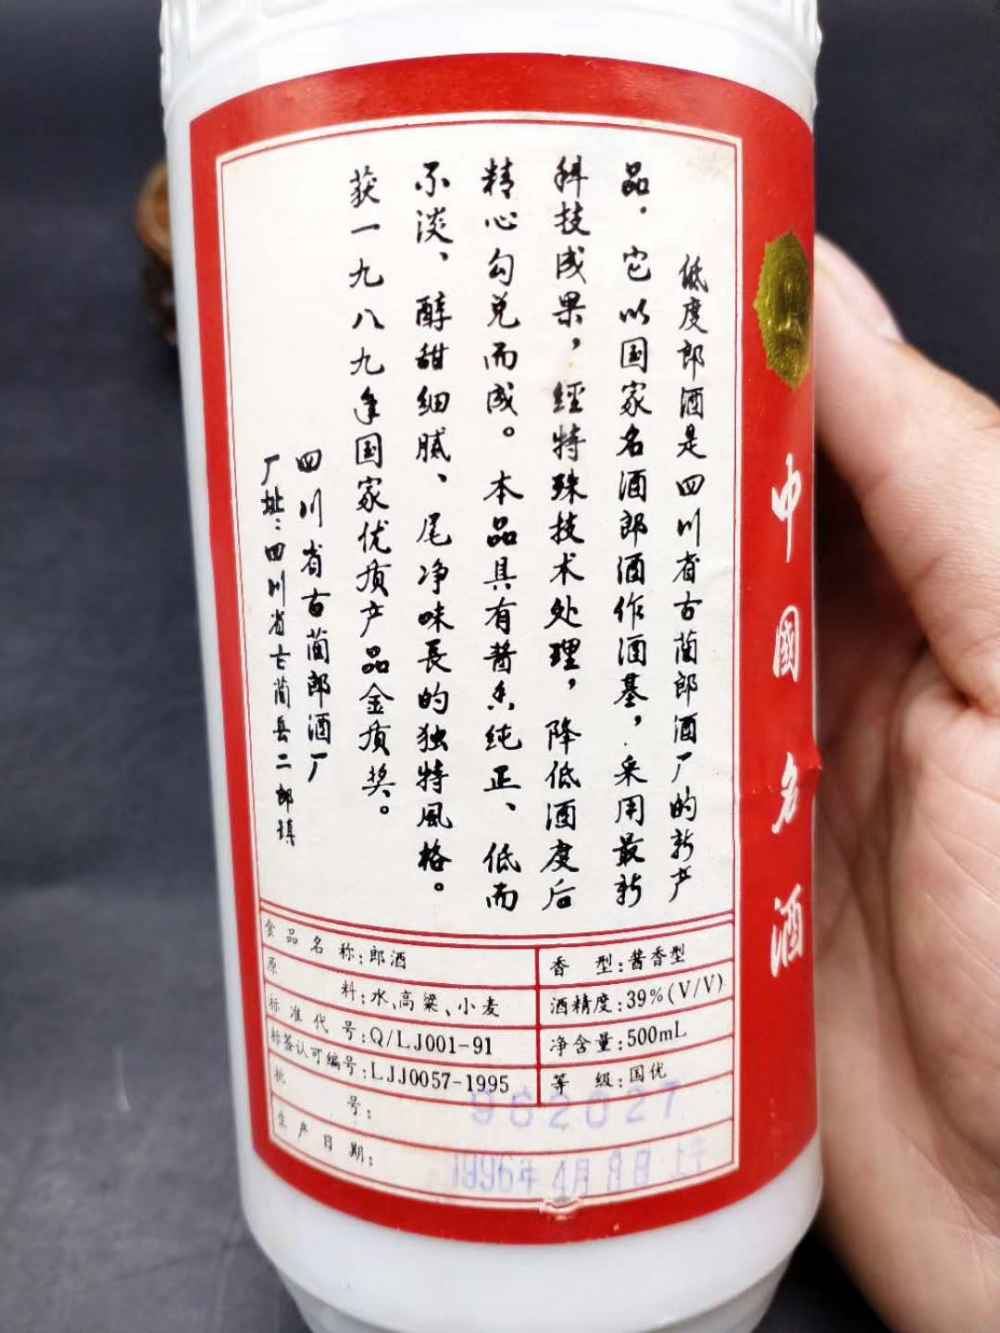 低度郎酒是四川省古蔺郎酒厂的新产
品．它以国家名酒郎酒作酒基，采用最新
科技成果，经特殊技术处理，降低酒度后
精心勾兑而成。本品具有酱香纯正、低而
不淡、醇甜细腻、尾净味長的独特風格。
获一九八九年国家优质产品金质奖。
四川省古蔺郎酒厂
厂址：四川省古蔺县二郎镇
中國名酒
食品名称：郎酒
香型：酱香型
原料：水、高粱、小麦
酒精度：39%(V/V)
标准代号：Q/LJ001-91
净含量：500mL
标签认可编号：LJJ0057-1995
等级：国优
批号：962027
生产日期：1996年4月8日上午